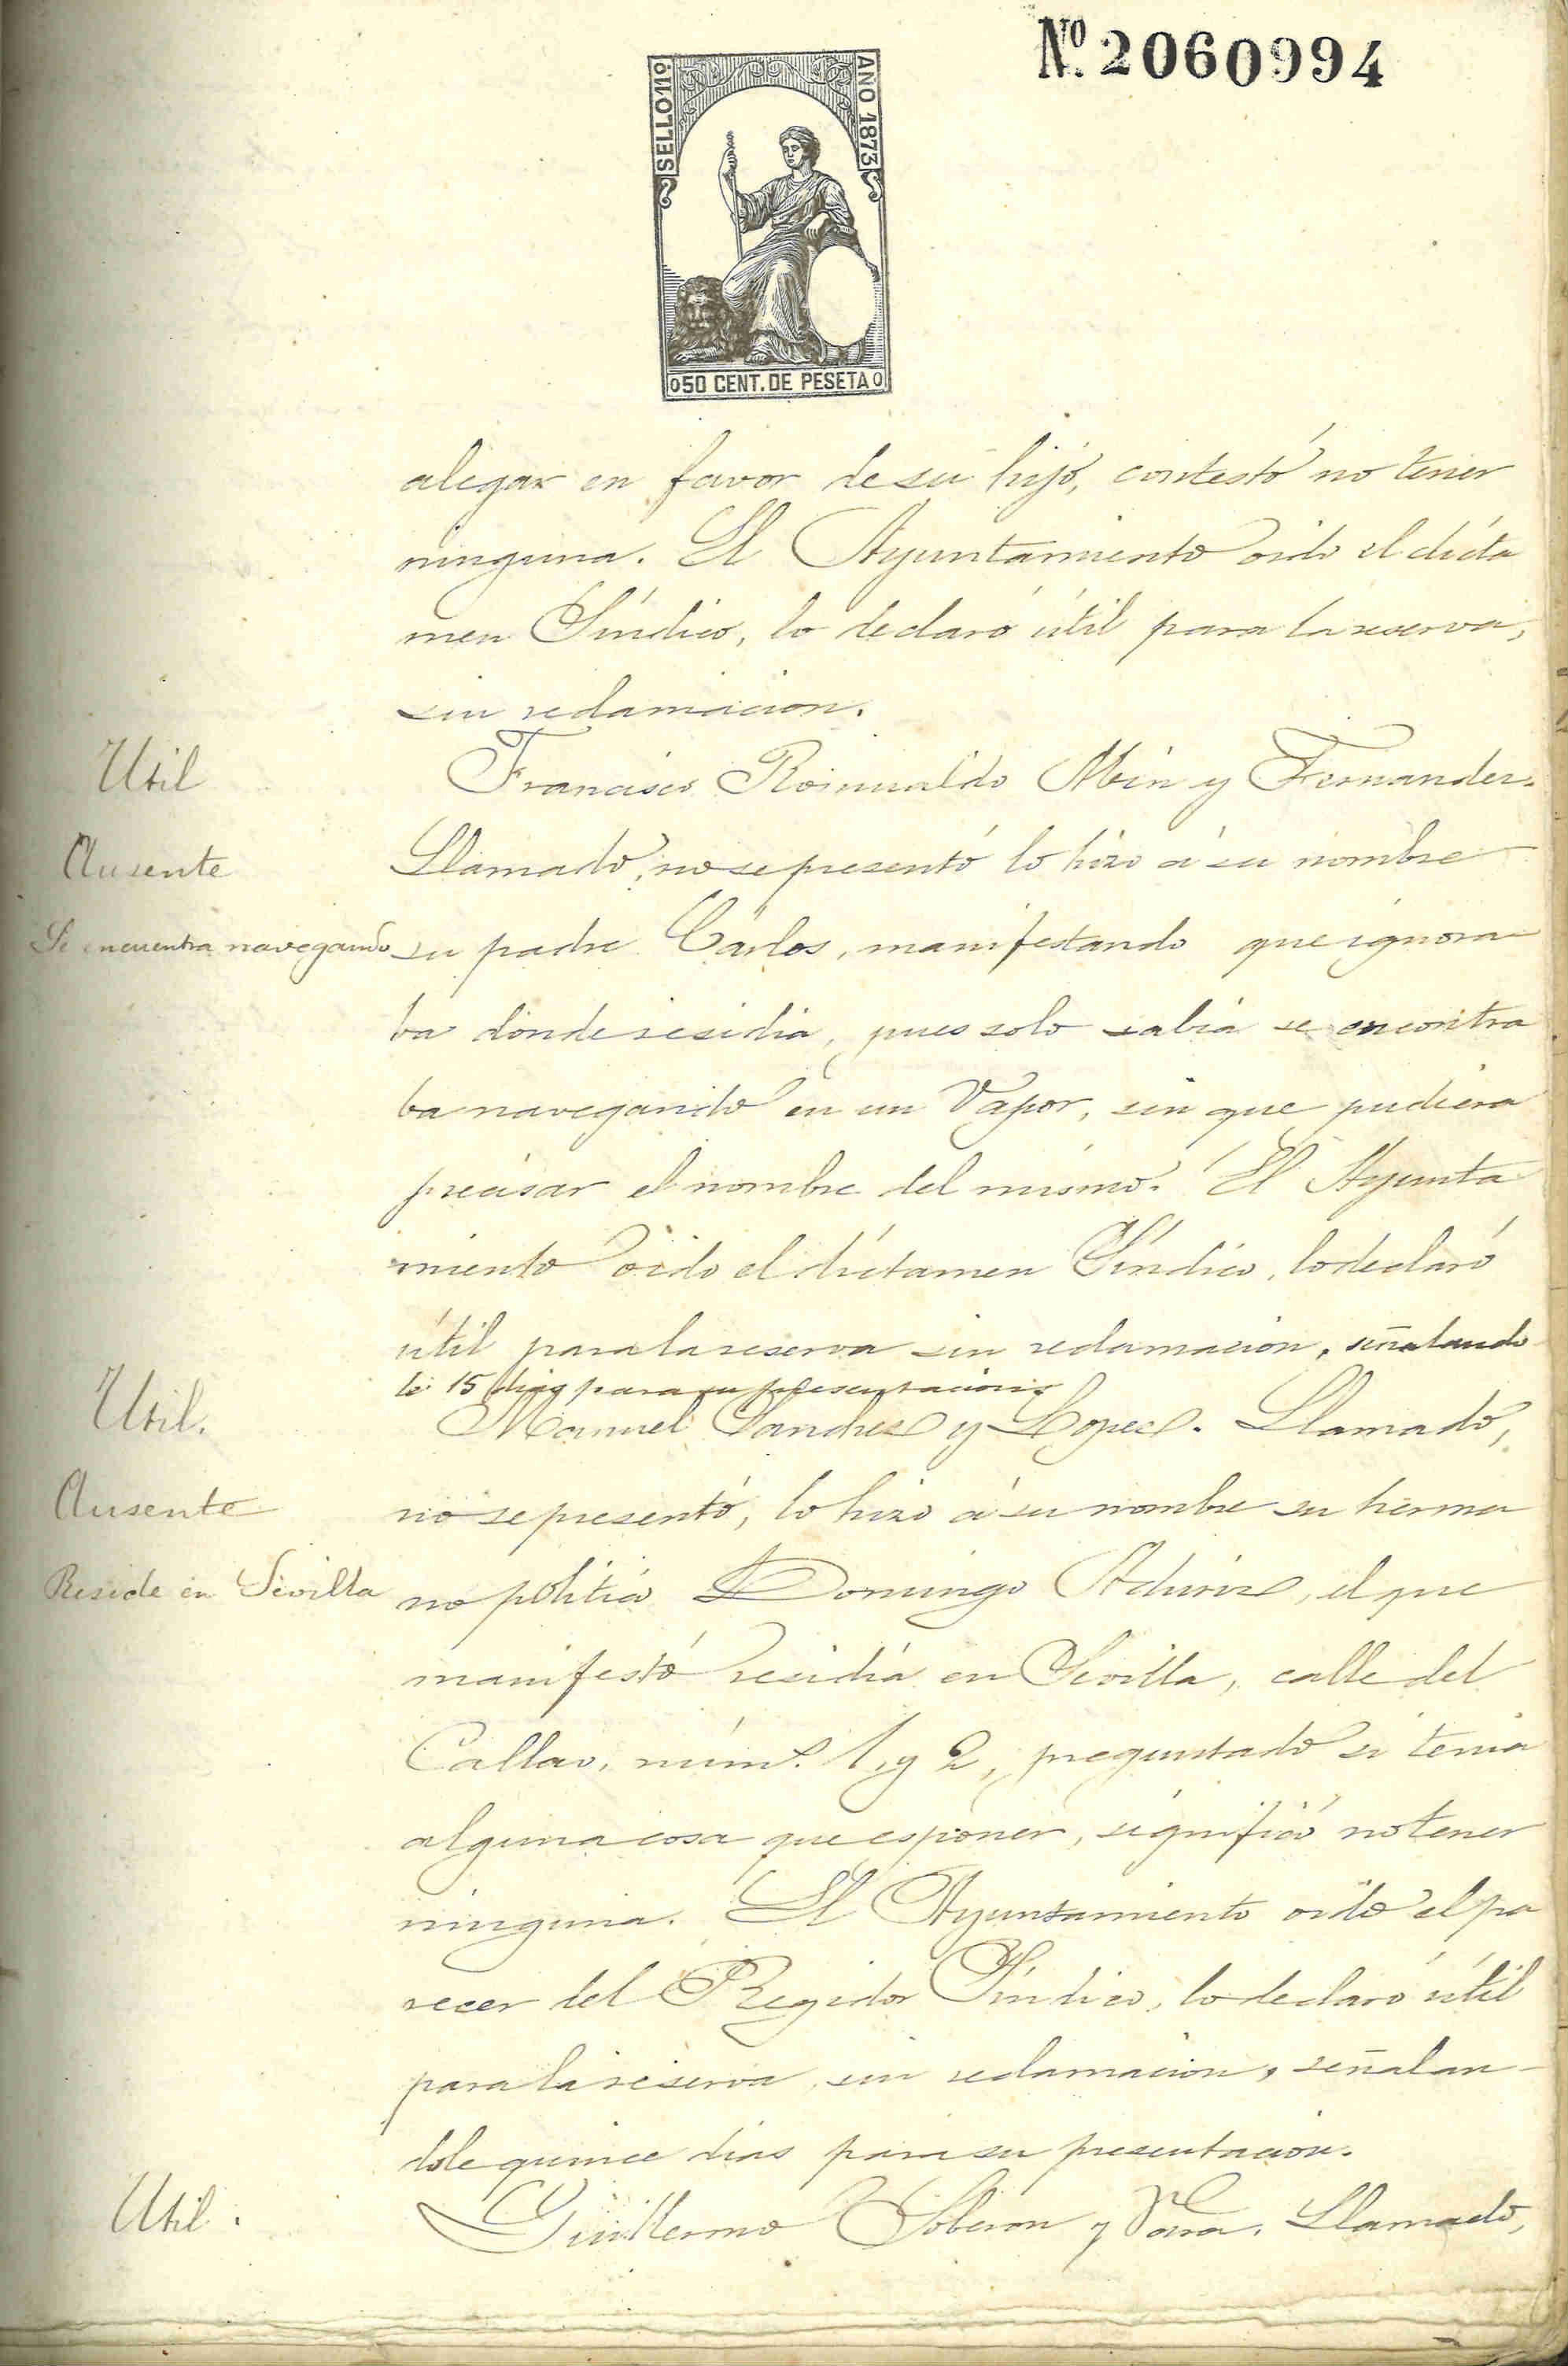 Nº. 2060994
SELLO 11º
AÑO 1873
050 CENT. DE PESETA 0
alegar en favor de su hijo, contestó no tener
ninguna. El Ayuntamiento oido el dicta
men Síndico, lo declaró útil para la reserva,
sin reclamacion.
Util
Francisco Romualdo Mier y Fernandez.
Ausente
Llamado, no se presentó lo hizo á su nombre
Se encuentra navegando
su padre Cárlos, manifestando que ignora
ba donde residia, pues solo sabia se encontra
ba navegando en un Vapor, sin que pudiera
precisar el nombre del mismo. El Ayunta
miento oido el dictamen Síndico, lo declaró
útil para la reserva sin reclamacion, señalando
le 15 dias para su presentacion
Util.
Manuel Sanchez y Lopez. Llamado,
Ausente
no se presentó, lo hizo á su nombre su herma
Reside en Sevilla
no político Domingo, el que
manifestó residia en Sevilla, calle del
Callao, núms. 1 y 2, preguntado si tenia
alguna cosa que esponer, significó no tener
ninguna. El Ayuntamiento oido el pa
recer del Regidor Síndico, lo declaró útil
para la reserva, sin reclamacion, señalan-
dole quince dias para su presentacion.
Util.
Guillermo Soberon y. Llamado,